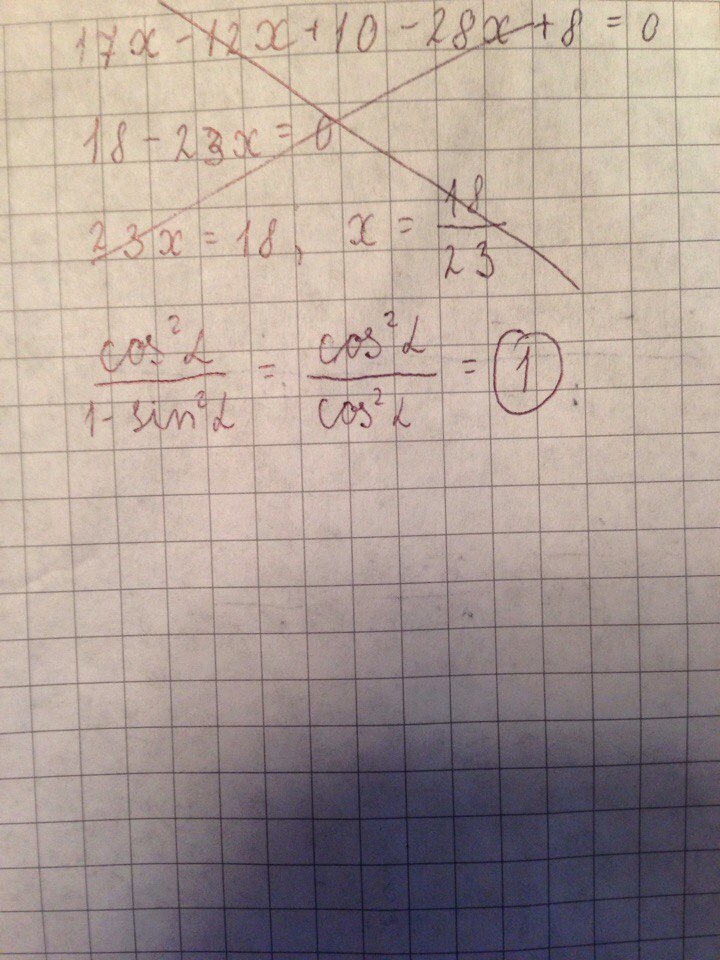 17x - 12x + 10 - 28x + 8 = 0
18 - 23x = 0
23x = 18, x = 18/23
cos²α/1-sin²α = cos²α/cos²α = 1.